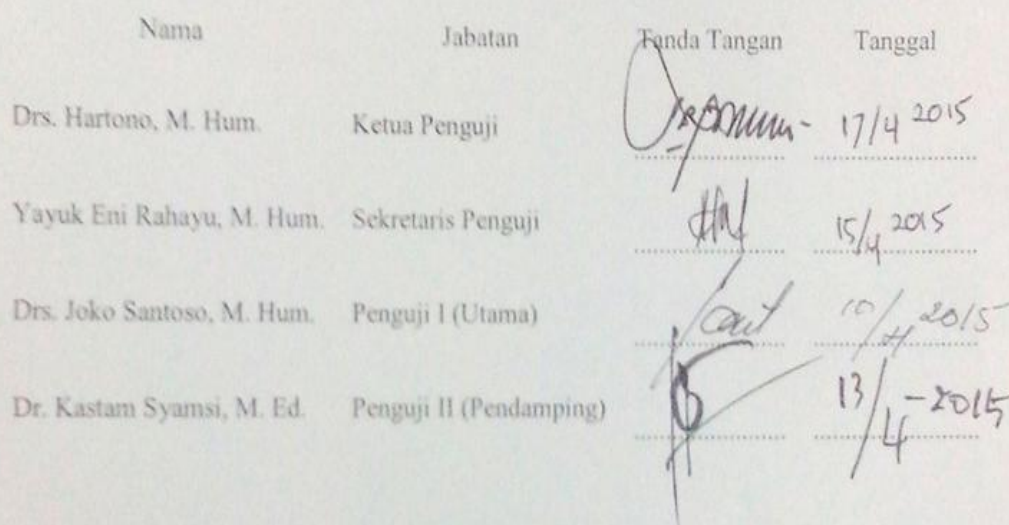 Nama Jabatan Tanda Tangan Tanggal
Drs. Hartono, M. Hum. Ketua Penguji 17/4 2015
Yayuk Eni Rahayu, M. Hum. Sekretaris Penguji 15/4 2015
Drs. Joko Santoso, M. Hum. Penguji I (Utama) 10/4 2015
Dr. Kastam Syamsi, M. Ed. Penguji II (Pendamping) 13/4-2015